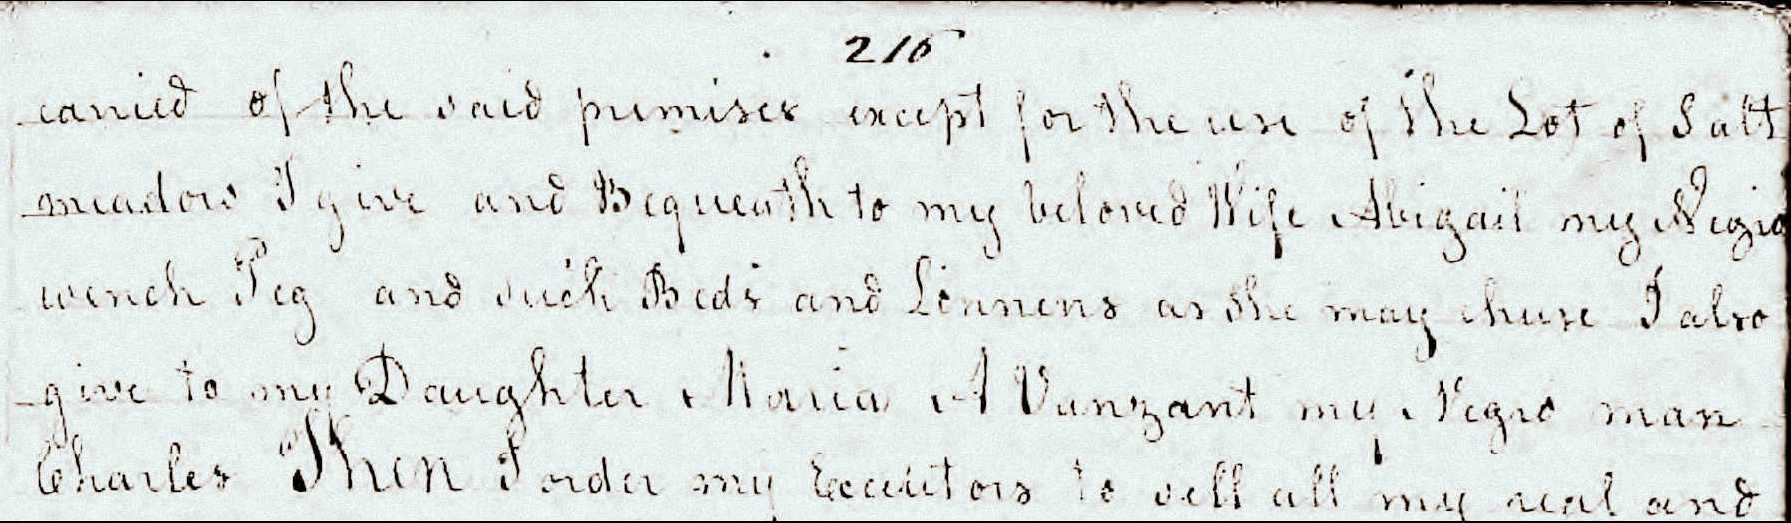 216
carried of the said premises except for the use of the Lot of Salt
meadow I give and Bequeath to my beloved Wife Abigail my Negro
wench Peg and such Beds and Linnens as she may chuse I also
give to my Daughter Maria A Vanzant my Negro man
Charles Then I order my Executors to sell all my real and